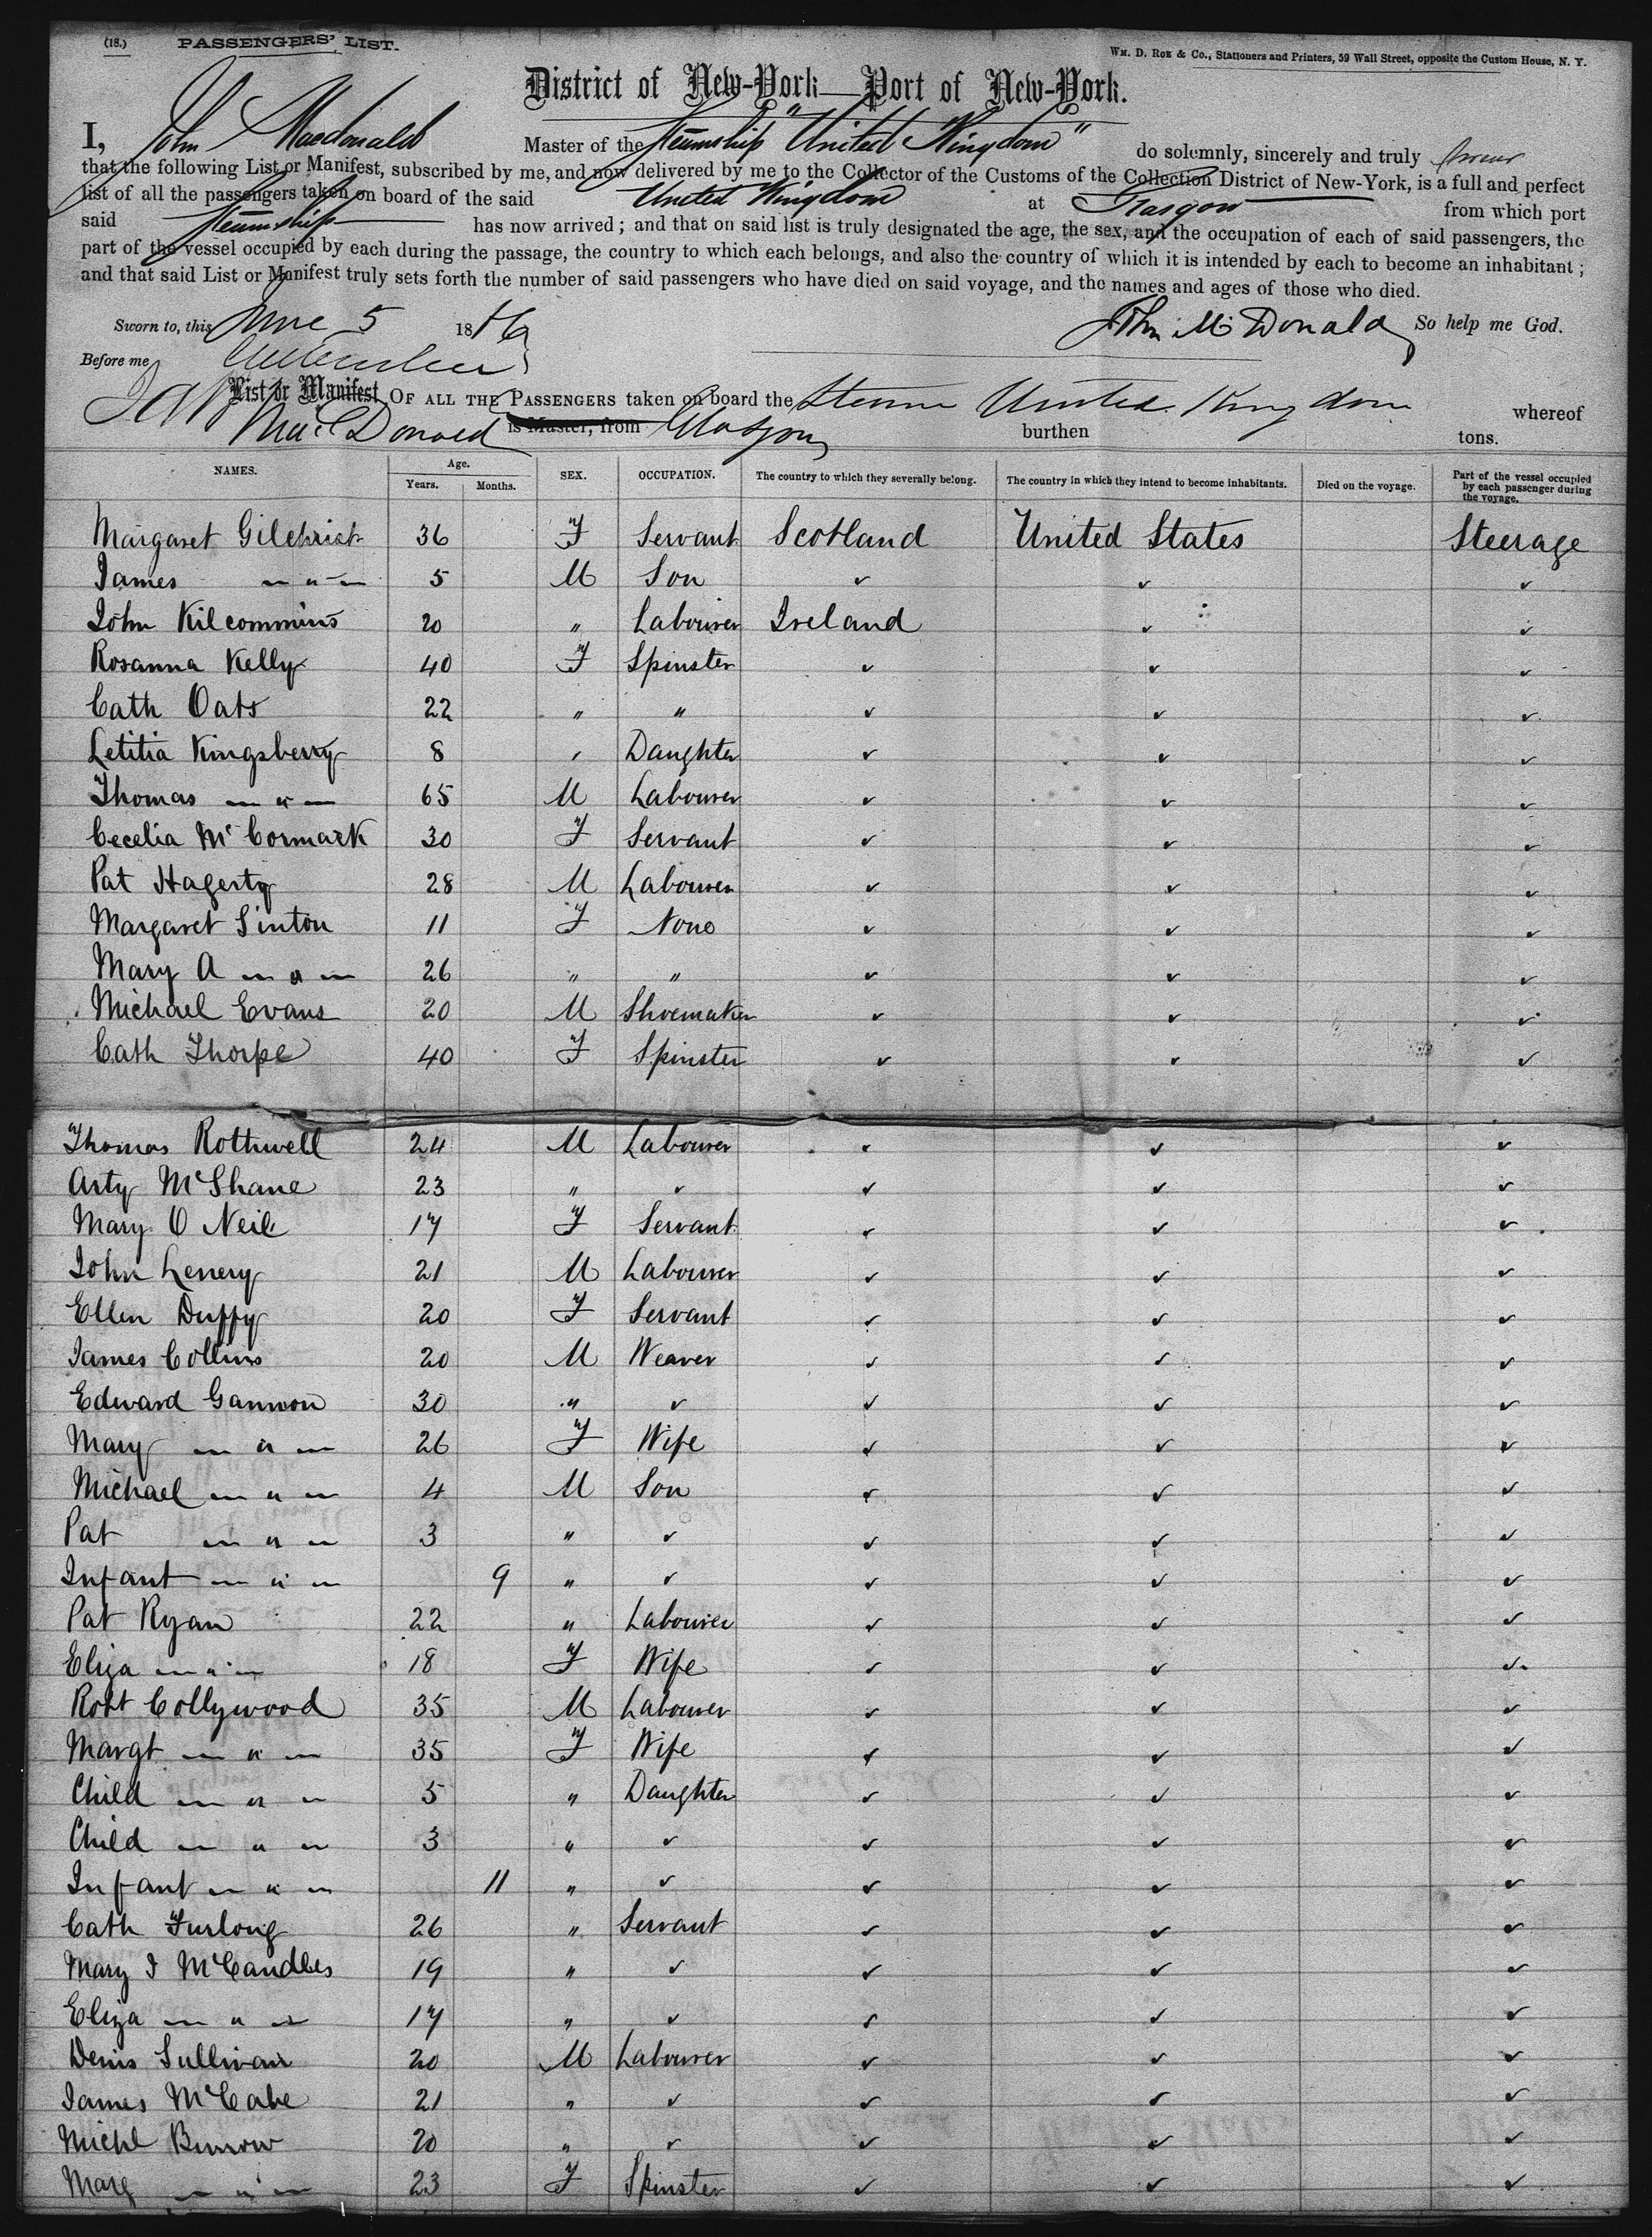 (18.) PASSENGERS' LIST.
WM. D. ROE & CO., Stationers and Printers, 59 Wall Street, opposite the Custom House, N. Y.
District of New-York—Port of New-York.
I, John Macdonald Master of the Steamship "United Kingdom" do solemnly, sincerely and truly swear
that the following List or Manifest, subscribed by me, and now delivered by me to the Collector of the Customs of the Collection District of New-York, is a full and perfect
list of all the passengers taken on board of the said United Kingdom at Glasgow from which port
said Steamship has now arrived; and that on said list is truly designated the age, the sex, and the occupation of each of said passengers, the
part of the vessel occupied by each during the passage, the country to which each belongs, and also the country of which it is intended by each to become an inhabitant;
and that said List or Manifest truly sets forth the number of said passengers who have died on said voyage, and the names and ages of those who died.
Sworn to, this June 5 18 John McDonald So help me God.
Before me
List or Manifest OF ALL THE PASSENGERS taken on board the Steam United Kingdom whereof
MacDonald is Master, from Glasgow burthen tons.
NAMES. Age. Years. Months. SEX. OCCUPATION. The country to which they severally belong. The country in which they intend to become inhabitants. Died on the voyage. Part of the vessel occupied by each passenger during the voyage.
Margaret Gilchrist 36 F Servant Scotland United States Steerage
James — " — 5 M Son ✓ ✓ ✓
John Kilcommins 20 " Labourer Ireland ✓ ✓
Rosanna Kelly 40 F Spinster ✓ ✓ ✓
Cath Oats 22 " " ✓ ✓ ✓
Letitia Kingsberry 8 " Daughter ✓ ✓ ✓
Thomas — " — 65 M Labourer ✓ ✓ ✓
Cecelia McCormark 30 F Servant ✓ ✓ ✓
Pat Hagerty 28 M Labourer ✓ ✓ ✓
Margaret Sinton 11 F None ✓ ✓ ✓
Mary A — " — 26 " " ✓ ✓ ✓
Michael Evans 20 M Shoemaker ✓ ✓ ✓
Cath Thorpe 40 F Spinster ✓ ✓ ✓
Thomas Rothwell 24 M Labourer ✓ ✓ ✓
Arty McShane 23 " ✓ ✓ ✓ ✓
Mary O Neil 17 F Servant ✓ ✓ ✓
John Lenery 21 M Labourer ✓ ✓ ✓
Ellen Duffy 20 F Servant ✓ ✓ ✓
James Collins 20 M Weaver ✓ ✓ ✓
Edward Gannon 30 " ✓ ✓ ✓ ✓
Mary — " — 26 F Wife ✓ ✓ ✓
Michael — " — 4 M Son ✓ ✓ ✓
Pat — " — 3 " ✓ ✓ ✓ ✓
Infant — " — 9 " ✓ ✓ ✓ ✓
Pat Ryan 22 " Labourer ✓ ✓ ✓
Eliza — " — 18 F Wife ✓ ✓ ✓
Robt Collywood 35 M Labourer ✓ ✓ ✓
Margt — " — 35 F Wife ✓ ✓ ✓
Child — " — 5 " Daughter ✓ ✓ ✓
Child — " — 3 " ✓ ✓ ✓ ✓
Infant — " — 11 " ✓ ✓ ✓ ✓
Cath Furlong 26 " Servant ✓ ✓ ✓
Mary J McCandles 19 " ✓ ✓ ✓ ✓
Eliza — " — 17 " ✓ ✓ ✓ ✓
Denis Sullivan 20 M Labourer ✓ ✓ ✓
James McCabe 21 " ✓ ✓ ✓ ✓
Michl 20 " ✓ ✓ ✓ ✓
Mary — " — 23 F Spinster ✓ ✓ ✓